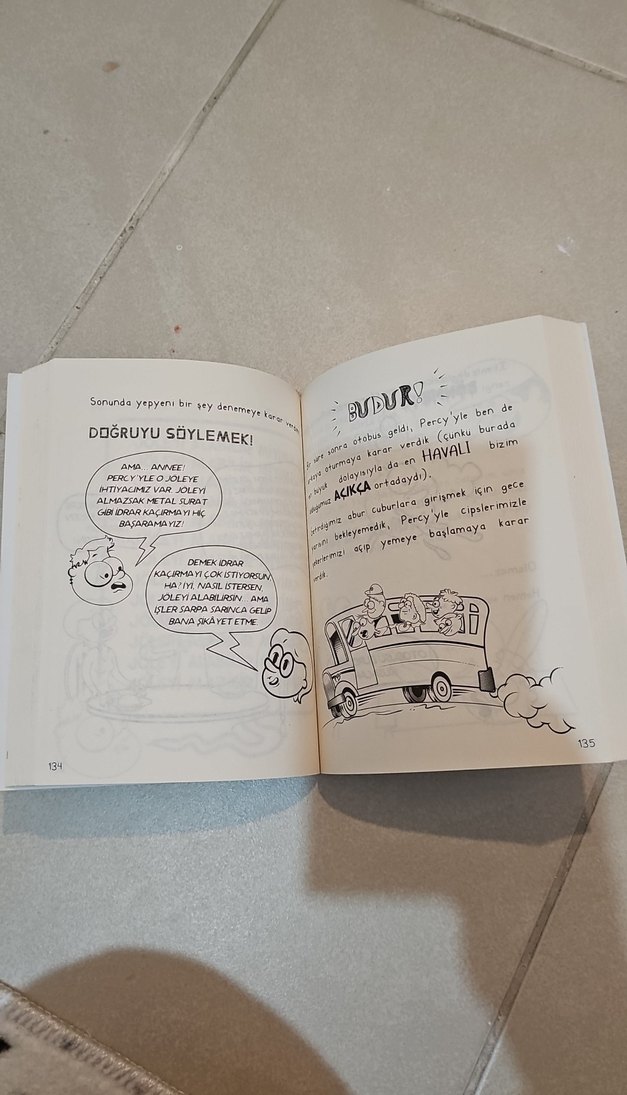 Sonunda yepyeni bir şey denemeye karar verdim
DOĞRUYU SÖYLEMEK!
AMA... ANNEE!
PERCY'YLE O JÖLEYE
İHTİYACIMIZ VAR. JÖLEYİ
ALMAZSAK METAL SURAT
GİBİ İDRAR KAÇIRMAYI HİÇ
BAŞARAMAYIZ!
DEMEK İDRAR
KAÇIRMAYI ÇOK İSTİYORSUN
HA? İYİ, NASIL İSTERSEN,
JÖLEYİ ALABİLİRSİN... AMA
İŞLER SARPA SARINCA GELİP
BANA ŞİKÂYET ETME.
134
BUDUR!
süre sonra otobüs geldi, Percy'yle ben de
oturmaya karar verdik (çünkü burada
büyük dolayısıyla da en HAVALI bizim
AÇIKÇA ortadaydı).
abur cuburlara girişmek için gece
bekleyemedik, Percy'yle cipslerimizle
açıp yemeye başlamaya karar
135